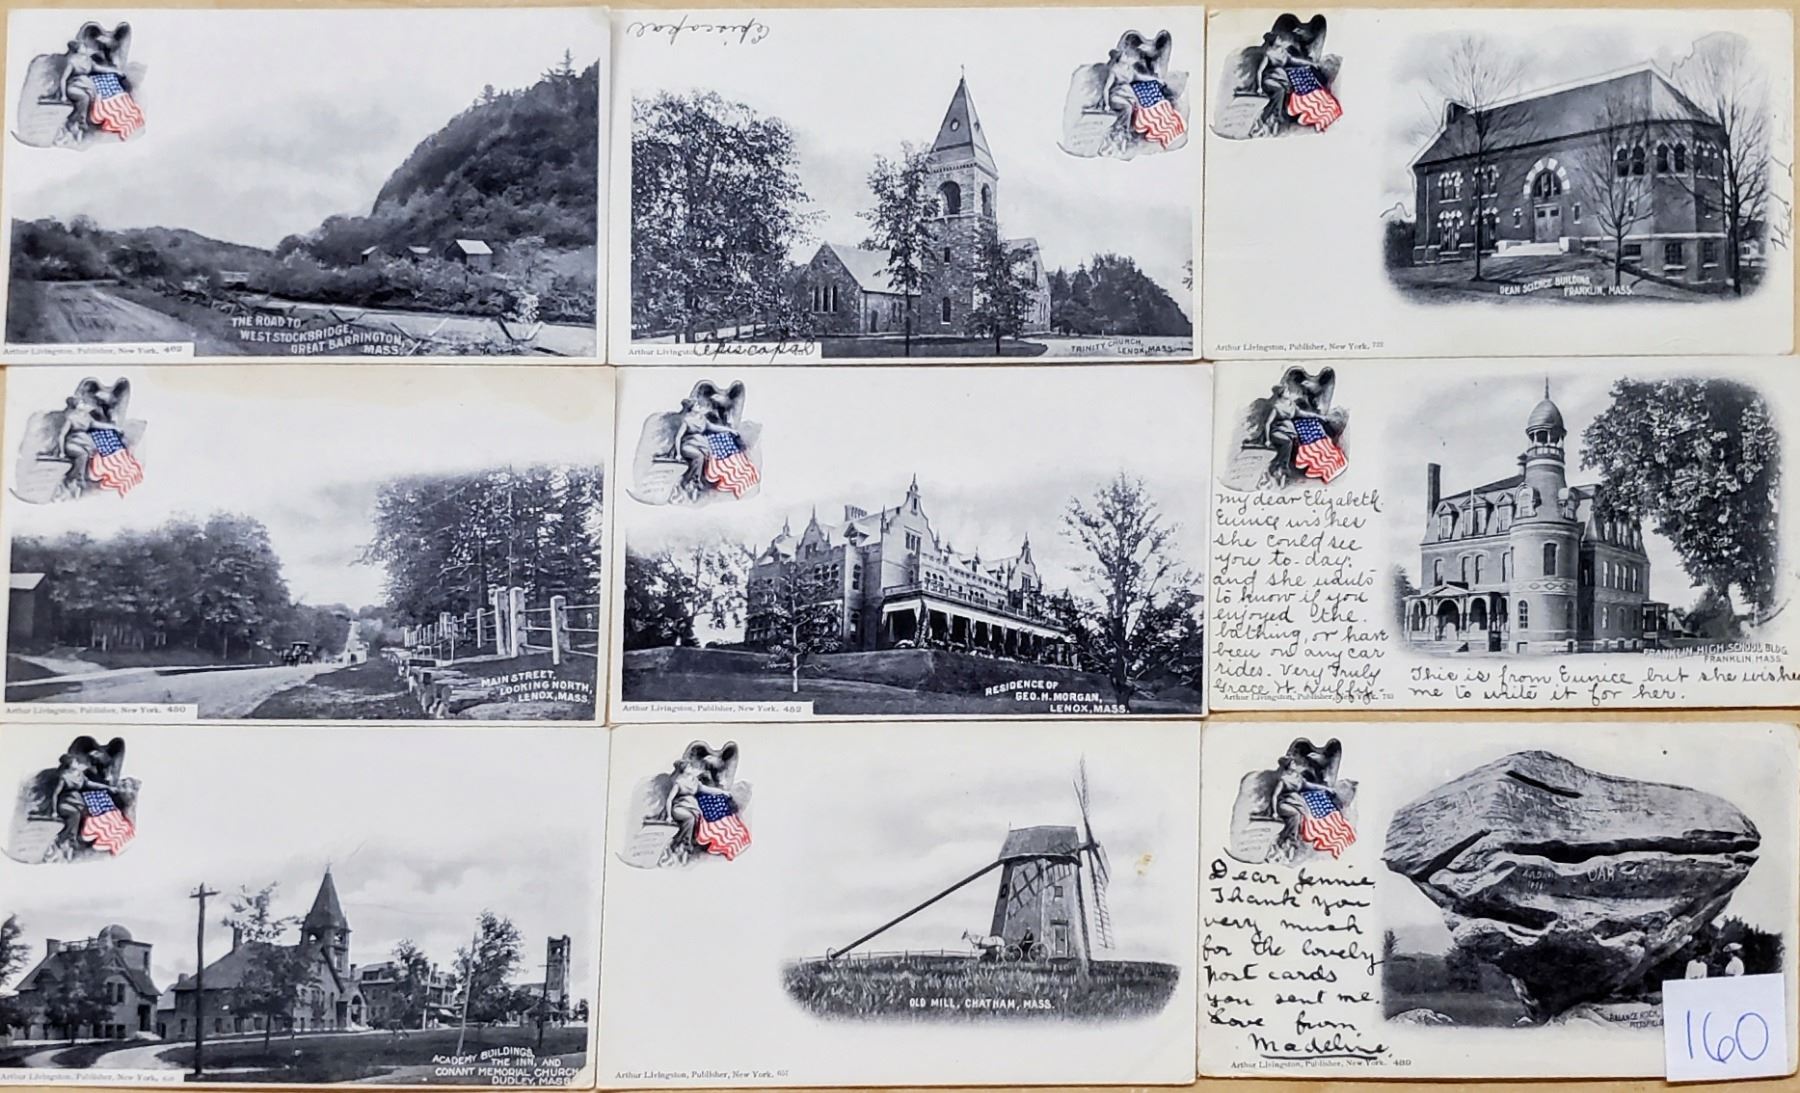 THE ROAD TO
WEST STOCKBRIDGE,
GREAT BARRINGTON,
MASS.
Arthur Livingston, Publisher, New York. 462
Episcopal
Episcopal
Arthur Livingston
TRINITY CHURCH,
LENOX, MASS.
DEAN SCIENCE BUILDING,
FRANKLIN, MASS.
Arthur Livingston, Publisher, New York. 722
MAIN STREET,
LOOKING NORTH,
LENOX, MASS.
Arthur Livingston, Publisher, New York. 450
RESIDENCE OF
GEO. H. MORGAN,
LENOX, MASS.
Arthur Livingston, Publisher, New York. 452
My dear Elizabeth.
Eunice wishes
she could see
you to-day,
and she wants
to know if you
enjoyed the
bathing, or have
been on any car
rides. Very Truly
Grace H. Duffy.
FRANKLIN HIGH SCHOOL BLDG.
FRANKLIN MASS.
This is from Eunice but she wishes
me to write it for her.
Arthur Livingston, Publisher, New York.
ACADEMY BUILDINGS,
THE INN, AND
CONANT MEMORIAL CHURCH
DUDLEY, MASS.
Arthur Livingston, Publisher, New York.
OLD MILL, CHATHAM, MASS.
Arthur Livingston, Publisher, New York. 657
Dear Jennie,
Thank you
very much
for the lovely
post cards
you sent me.
Love from
Madeline.
BALANCE ROCK,
PITTSFIELD
Arthur Livingston, Publisher, New York. 489
160